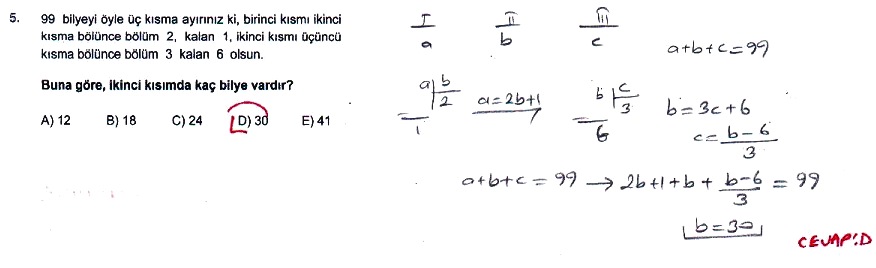 5. 99 bilyeyi öyle üç kısma ayırınız ki, birinci kısmı ikinci
kısma bölünce bölüm 2, kalan 1, ikinci kısmı üçüncü
kısma bölünce bölüm 3 kalan 6 olsun.
Buna göre, ikinci kısımda kaç bilye vardır?
A) 12 B) 18 C) 24 D) 30 E) 41
I II III
a b c
a+b+c=99
a b 2 1 a=2b+1 b c 3 6 b=3c+6
c=b-6/3
a+b+c=99 → 2b+1+b+b-6/3=99
b=30
CEVAP:D